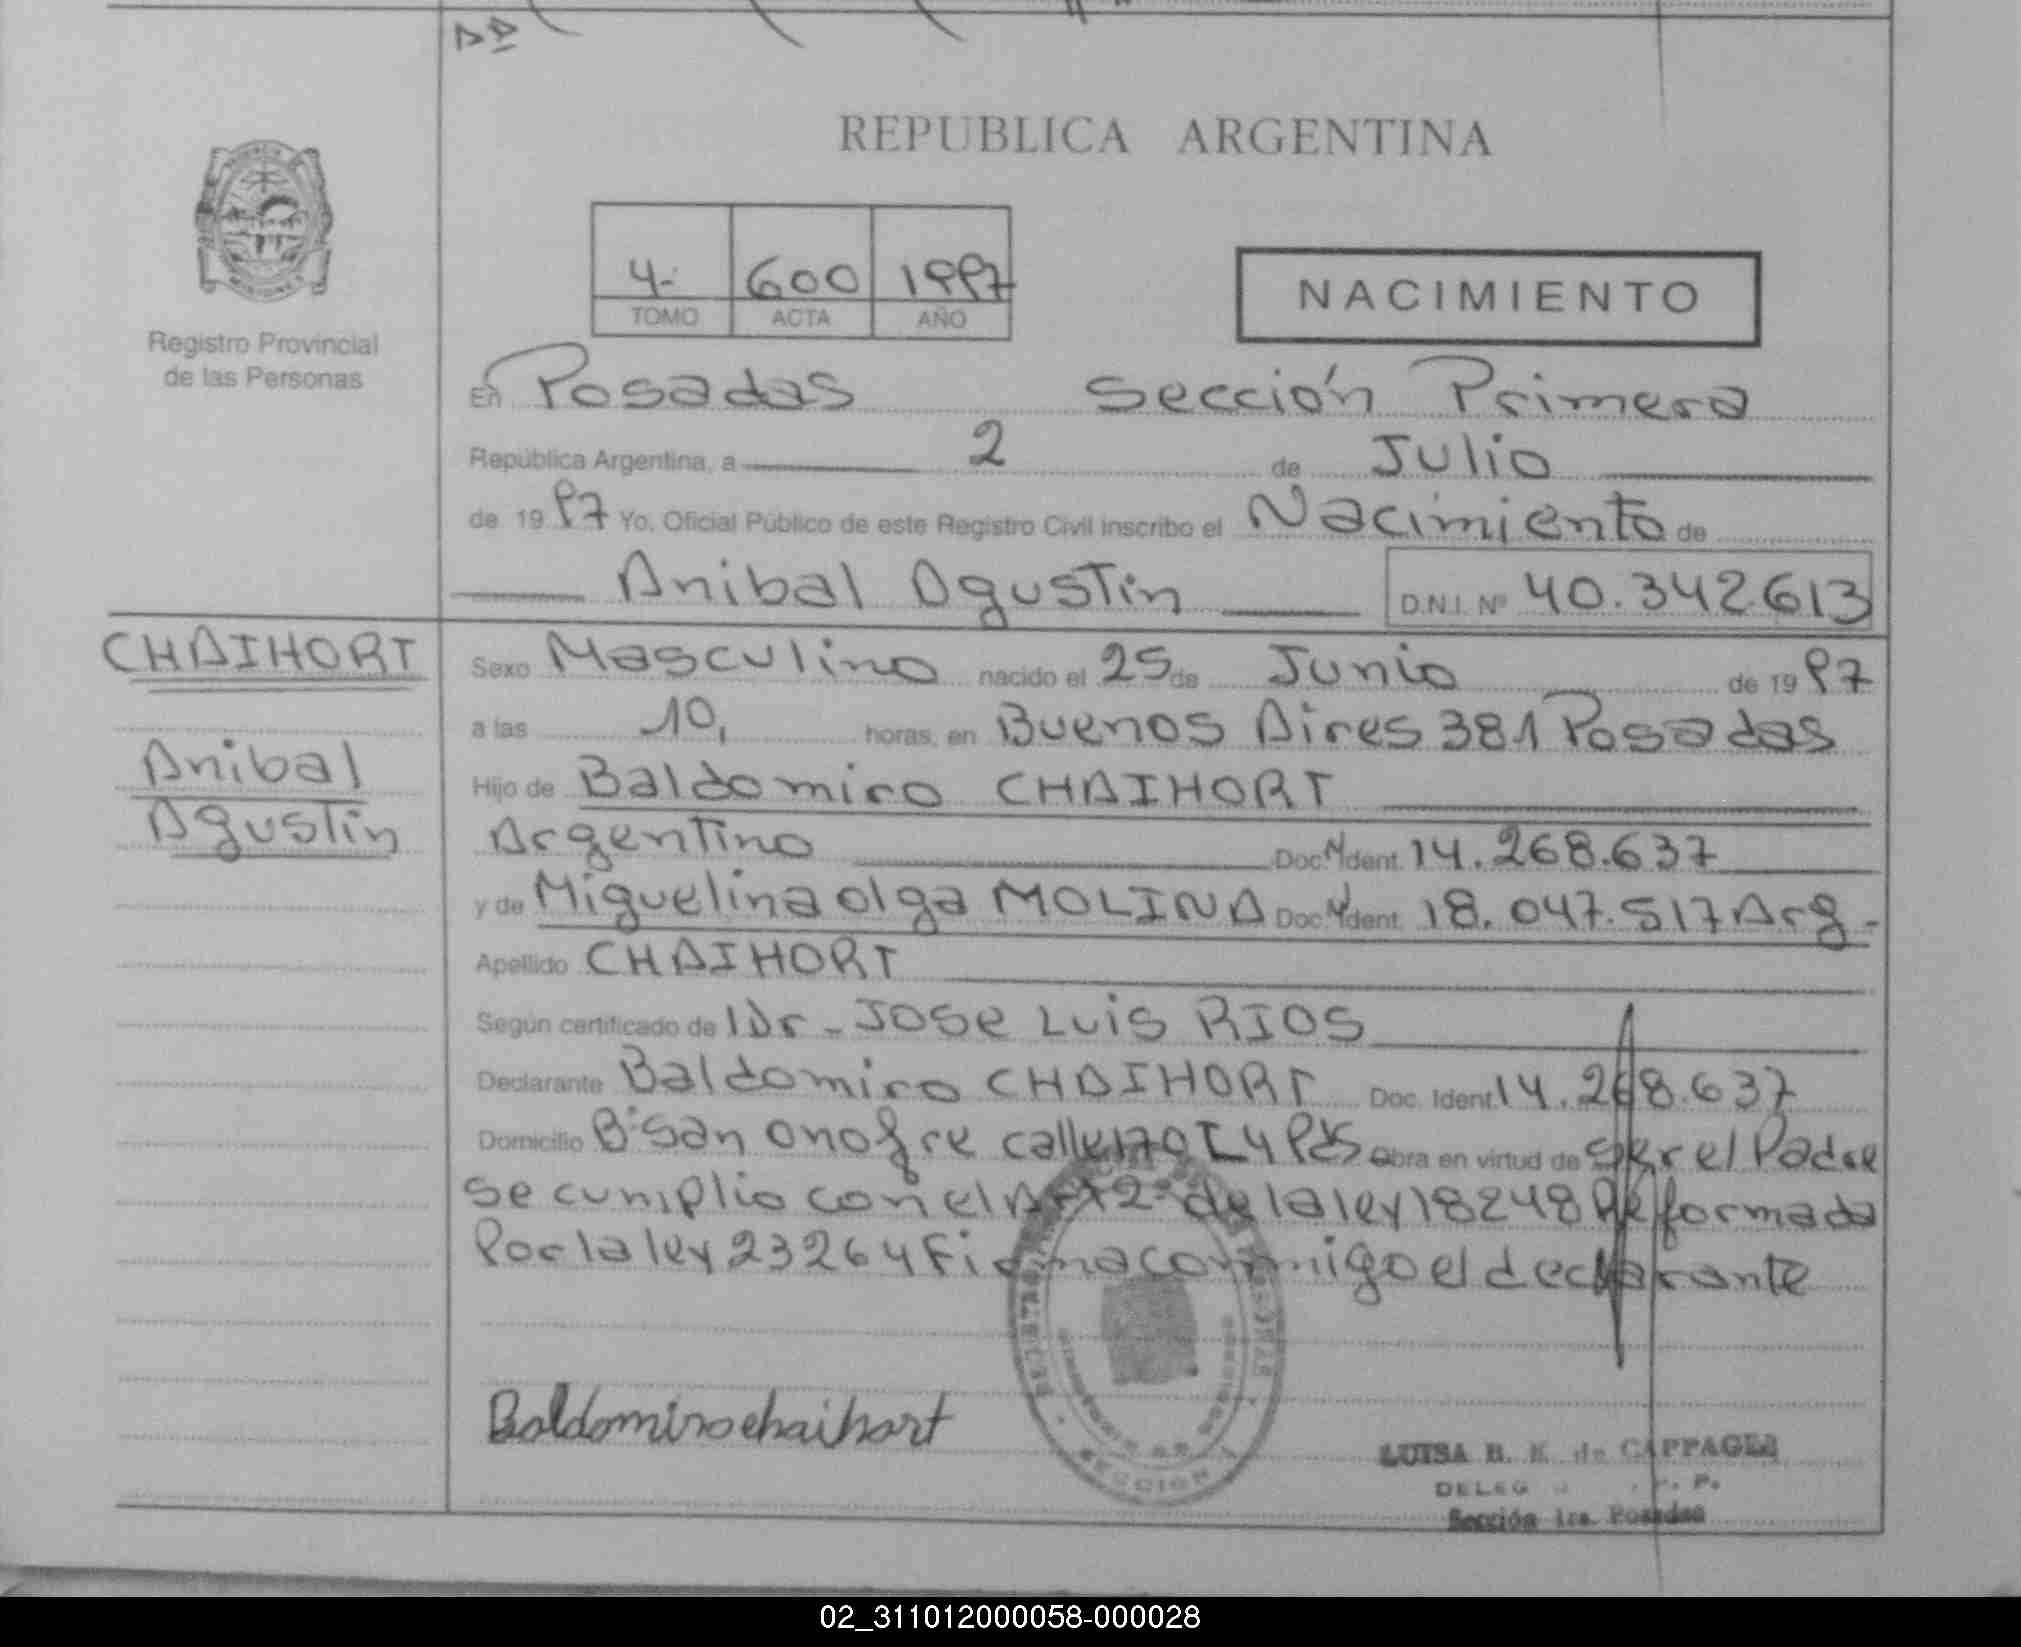 REPUBLICA ARGENTINA
4- 600 1997
TOMO ACTA AÑO
NACIMIENTO
Registro Provincial
de las Personas
En Posadas Sección Primera
República Argentina, a 2 de Julio
de 1997 Yo, Oficial Público de este Registro Civil inscribo el Nacimiento de
Anibal Agustin D.N.I. Nº 40.342613
CHAIHORT
Anibal
Agustin
Sexo Masculino nacido el 25 de Junio de 1997
a las 10, horas, en Buenos Aires 381 Posadas
Hijo de Baldomiro CHAIHORT
Argentino Doc. Ident. 14.268.637
y de Miguelina Olga MOLINA Doc. Ident. 18.047.517 Arg-
Apellido CHAIHORT
Según certificado de Dr- JOSE LUIS RIOS
Declarante Baldomiro CHAIHORT Doc. Ident. 14.268.637
Domicilio Bº San Onofre calle Pds Obra en virtud de ser el Padre
se cumplio con el Art 2º de la ley 18248 Reformada
Por la ley 23264 Firma conmigo el declarante
Baldomiro chaihort
SECCION 1
LUISA B. de CAPPAGLI
DELEG
Sección 1ra. Posadas
02_311012000058-000028